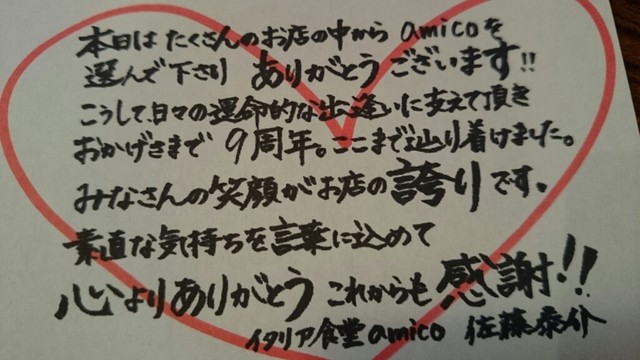 本日は たくさんのお店の中から amicoを
選んで下さり ありがとうございます!!
こうして、日々の運命的な出逢いに支えて頂き
おかげさまで 9周年。ここまで辿り着けました。
みなさんの笑顔がお店の誇りです。
素直な気持ちを言葉に込めて
心よりありがとう これからも 感謝!!
イタリア食堂 amico 佐藤泰介